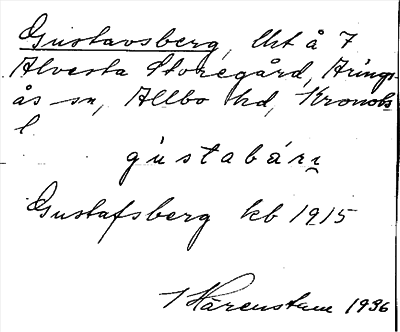 Gustavsberg, lht å 7
Alvesta Storegård, Arings-
ås sn, Allbo hd, Kronobs
l
gustabárı
Gustafsberg kb 1915
Hárenstam 1936